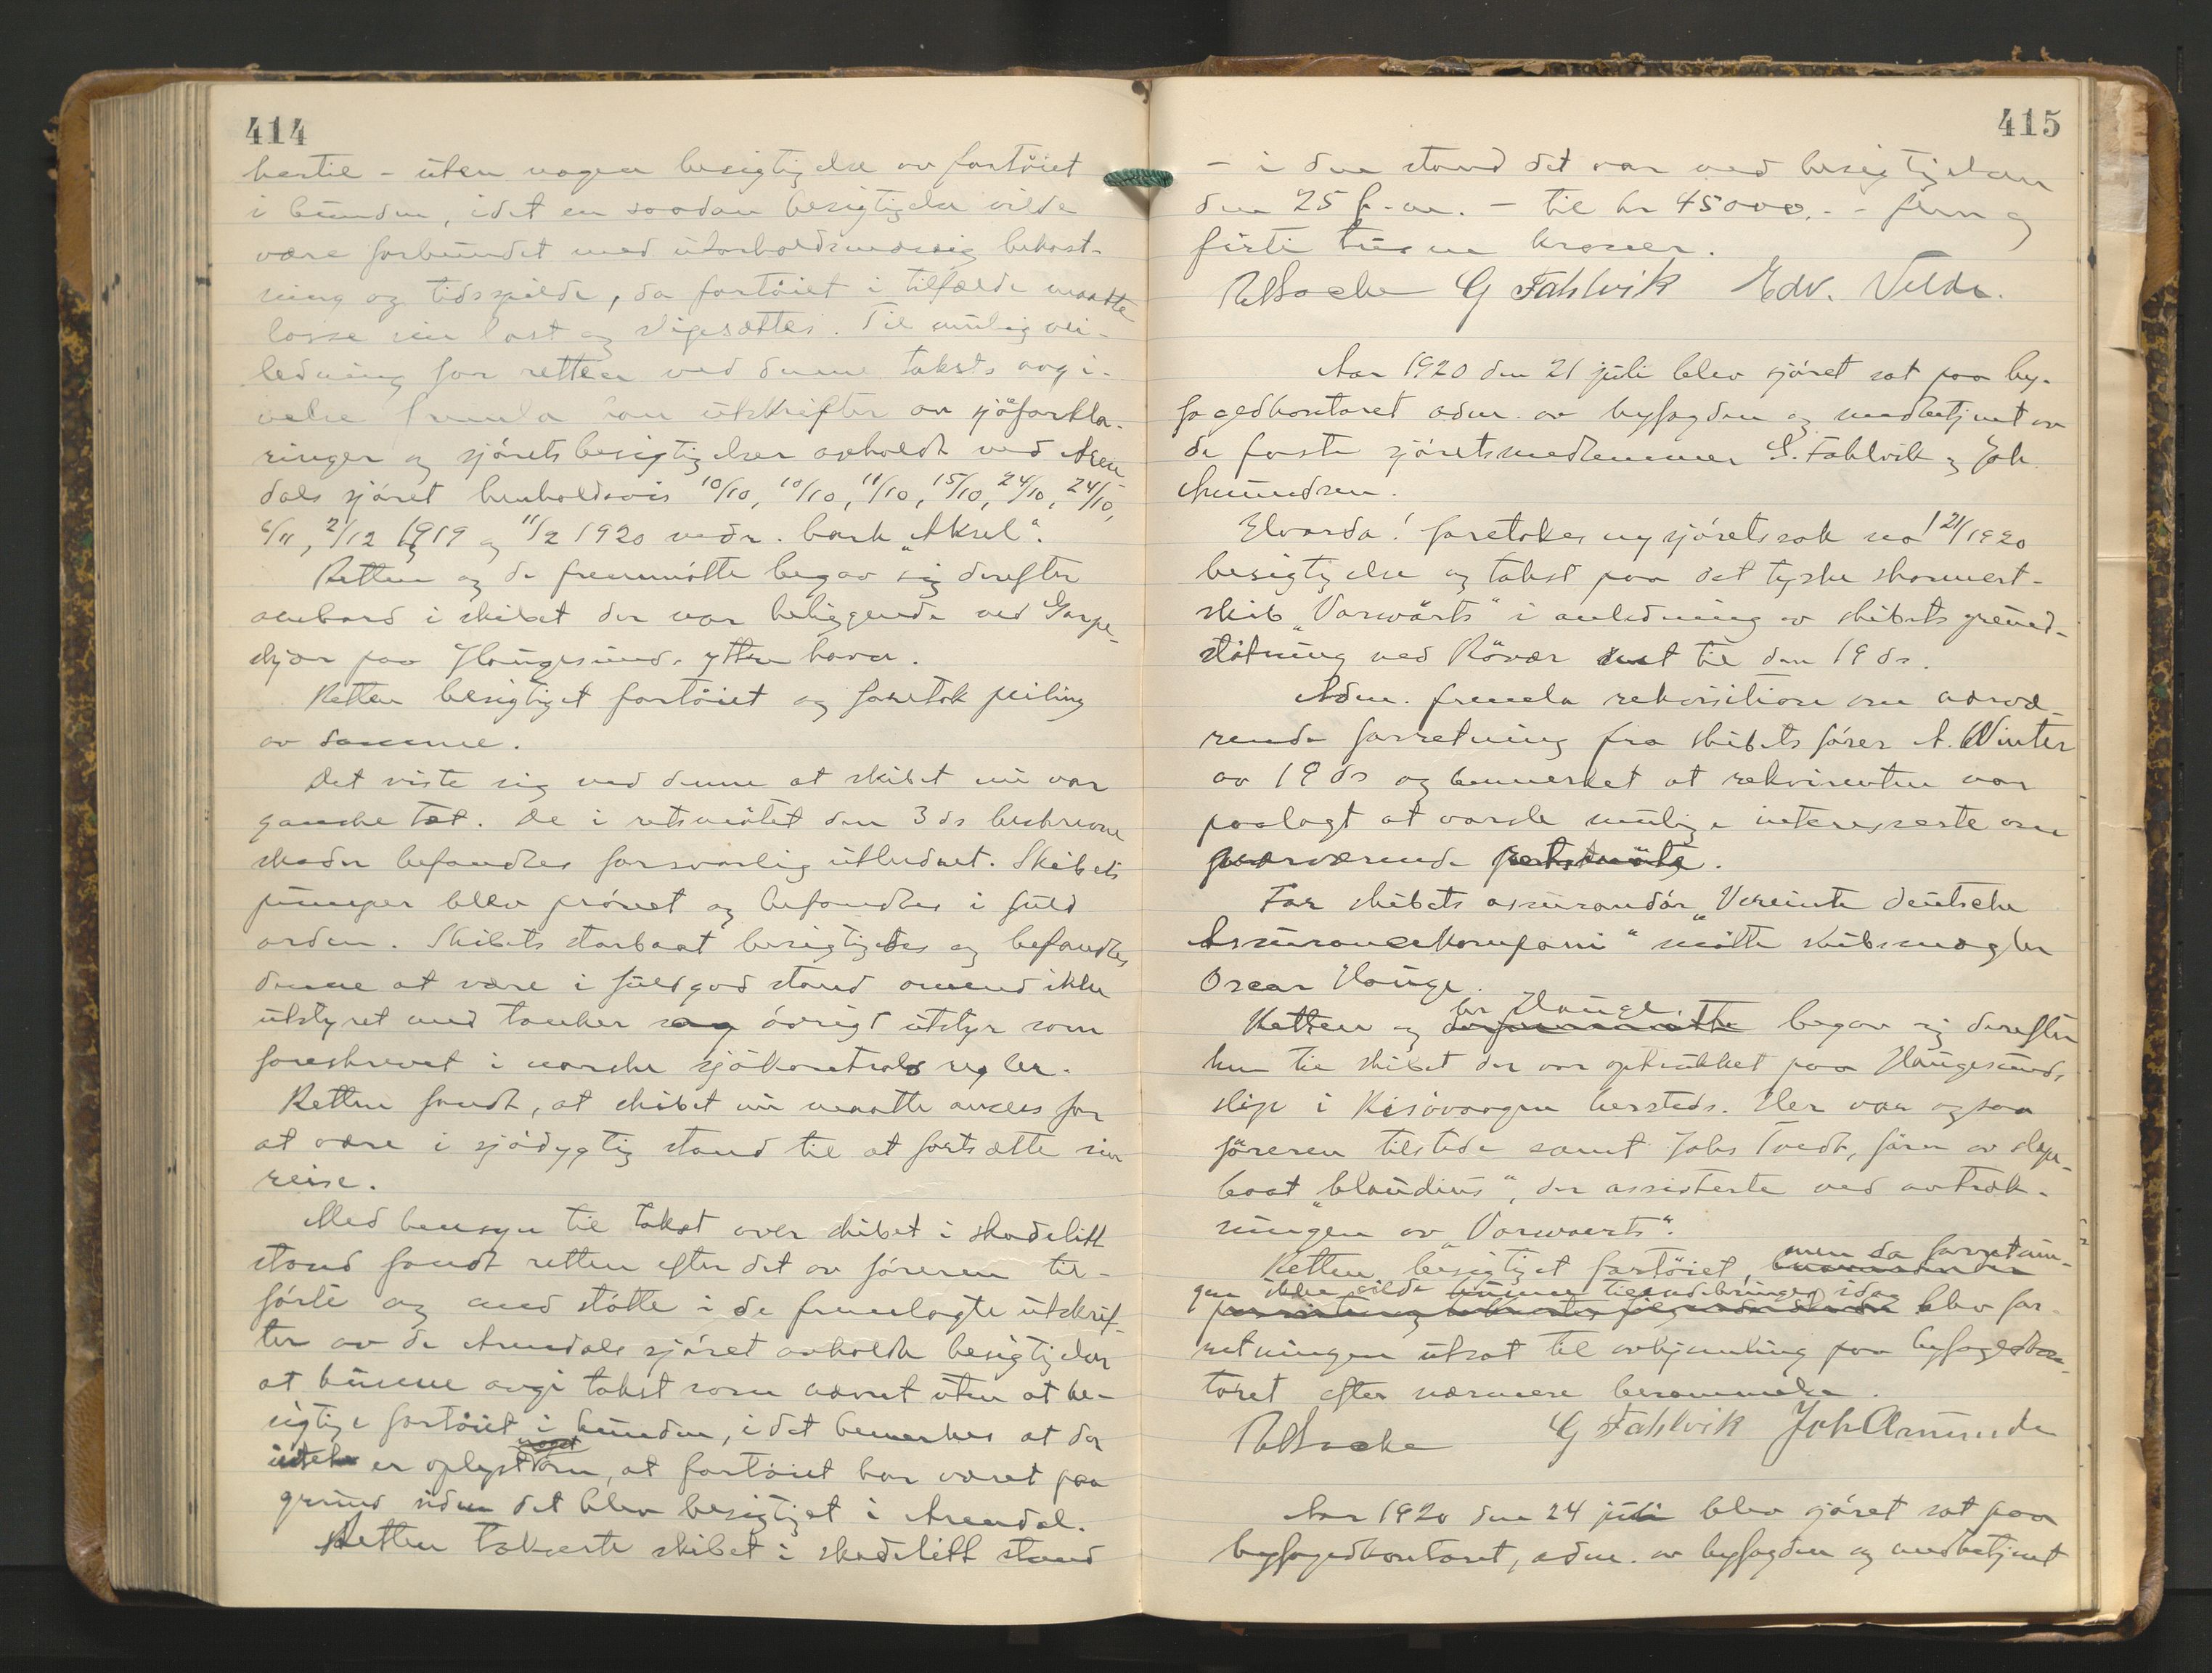 414
hertil - uten nogen besigtigelse av fartöiet
i bunden, idet en saadan besigtigelse vilde
være forbundet med uforholdsmæssig bekost-
ning og tidsspilde, da fartöiet i tilfælde maatte
losse sin last og slipsættes. Til mulig vei-
ledning for retten ved denne taksts avgi-
velse fremla han utskrifter av sjöforkla-
ringer og sjöretsbesigtigelser avholdt ved Aren-
dals sjöret henholdsvis 10/10, 10/10, 11/10, 15/10, 24/10, 24/10,
6/11, 2/12 1919 og 11/2 1920 vedr. bark "Aksel".
Retten og de fremmötte begav sig derefter
ombord i skibet der var beliggende ved Garpe-
skjær paa Haugesunds ytre havn.
Retten besigtiget fartöiet og foretok peiling
av samme.
Det viste sig ved denne at skibet nu var
ganske tæt. De i retsmötet den 3 ds beskrevne
skader befandtes forsvarlig utbedret. Skibets
pumper blev prövet og befandtes i fuld
orden. Skibets storbaat besigtigedes og befandtes
denne at være i fuldgod stand omend ikke
utstyret med tanker og övrigt utstyr som
foreskrevet i norske sjökontrols regler.
Retten fandt, at skibet nu maatte ansees for
at være i sjödygtig stand til at fortsætte sin
reise.
Med hensyn til takst over skibet i skadelitt
stand fandt retten efter det av föreren til-
förte og med stötte i de fremlagte utskrif-
ter av de Arendals sjöret avholdte besigtigelser
at kunne avgi takst som ævnt uten at be-
sigtige fartöiet i bunden, idet bemerkes at der
intet er oplyst noget om, at fartöiet har været paa
grund siden det blev besigtiget i Arendal.
Retten takserte skibet i skadelitt stand
415
- i den stand det var ved besigtigelsen
den 25 f.m. - til kr 45000.- - fem og
firti tusen kroner.
G Fahlvik Edv. Velde.
Aar 1920 den 21 juli blev sjöret sat paa by-
fogedkontoret adm. av byfogden og medbetjent av
de faste sjöretsmedlemmer G. Fahlvik og Joh
Amundsen.
Hvorda! foretokes ny sjöretssak no 121/1920
besigtigelse og takst paa det tyske skonnert-
skib "Vorwärts" i anledning av skibets grund-
stötning ved Rövær nat til den 19 ds.
Adm. fremla rekvisition om nærvæ-
rende forretning fra skibets förer A. Winter
av 19 ds og bemerket at rekvirenten var
paalagt at varsle mulige interesserte om
nærværende retsmöte.
For skibets assurandör "Vereinte deutsche
Assurancekompani" mötte skibsmægler
Oscar Hauge.
hr Hauge.
Retten og de fremmötte begav sig derefter
hen til skibet der var optrukket paa Haugesunds
slip i Risövaagen hersteds. Her var ogsaa
föreren tilstede samt Johs Tvedt, förer av slepe-
baat "Claudius", der assisterte ved avtræk-
ningen av "Vorwaerts".
men da forretnin-
Retten besigtiget fartöiet,
gen ikke vilde kunne tilendebringes idag
blev for-
retningen utsat til avhjemling paa byfogedkon-
toret efter nærmere berammelse.
G Fahlvik Joh Amunds
Aar 1920 den 24 juli blev sjöret sat paa
byfogedkontoret, adm. av byfogden og medbetjent